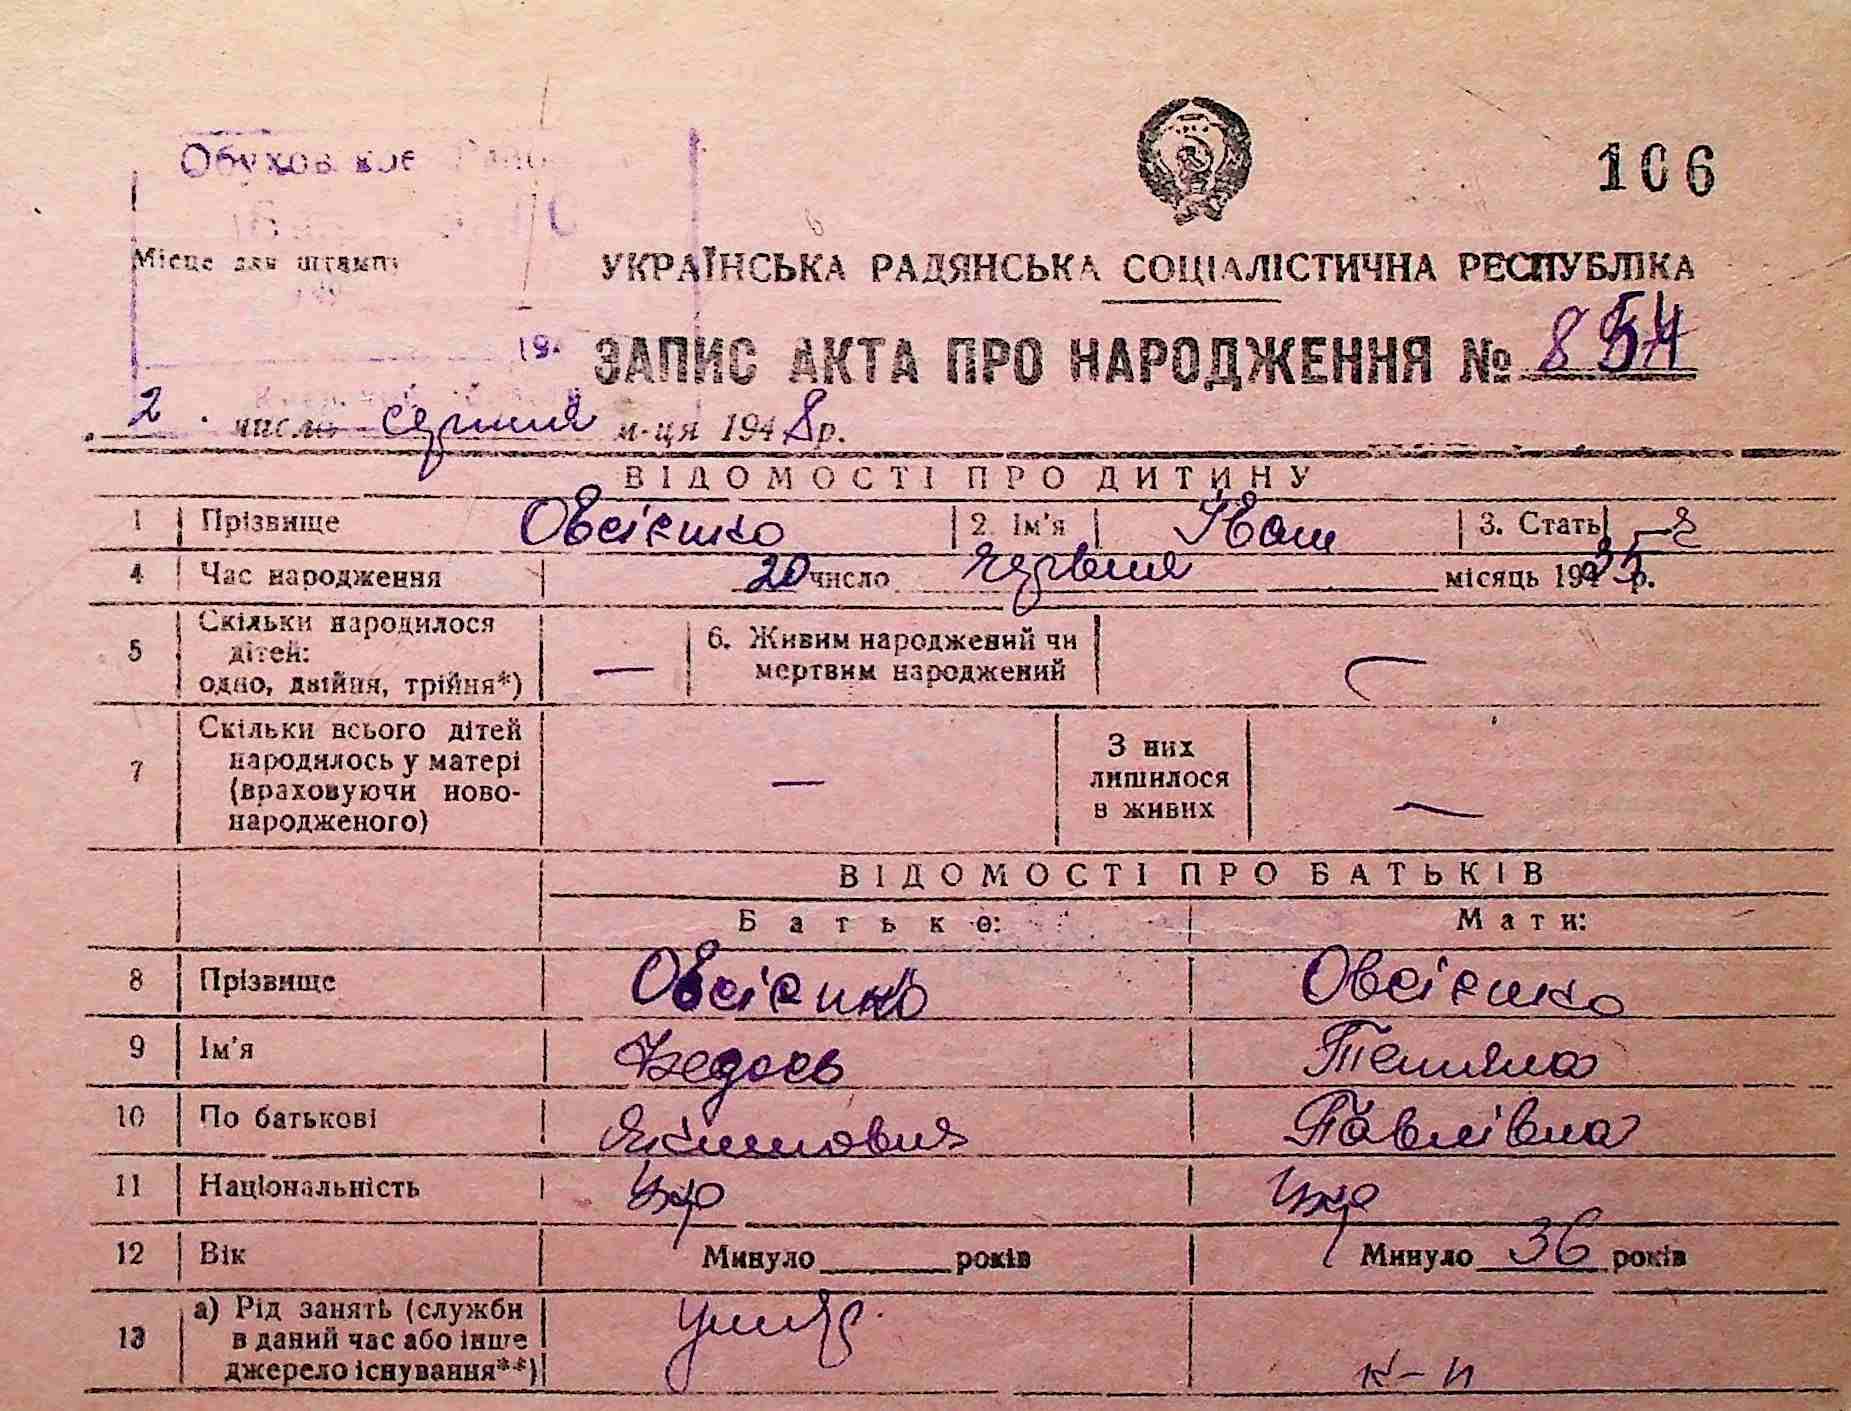 Обухов
106
Місце для штампу
УКРАЇНСЬКА РАДЯНСЬКА СОЦІАЛІСТИЧНА РЕСПУБЛІКА
19
ЗАПИС АКТА ПРО НАРОДЖЕННЯ № 854
2 число серпня м-ця 1948 р.
ВІДОМОСТІ ПРО ДИТИНУ
1 Прізвище Овсієнко 2. Ім'я Іван 3. Стать
4 Час народження 20 число червня місяць 1935 р.
5 Скільки народилося дітей: одно, двійня, трійня*) — 6. Живим народжений чи мертвим народжений —
7 Скільки всього дітей народилось у матері (враховуючи ново-народженого) — З них лишилося в живих —
ВІДОМОСТІ ПРО БАТЬКІВ
Батько: Мати:
8 Прізвище Овсієнко Овсієнко
9 Ім'я Федось Тетяна
10 По батькові Якимович Павлівна
11 Національність Укр Укр
12 Вік Минуло років Минуло 36 років
13 а) Рід занять (служби в даний час або інше джерело існування**) к-п